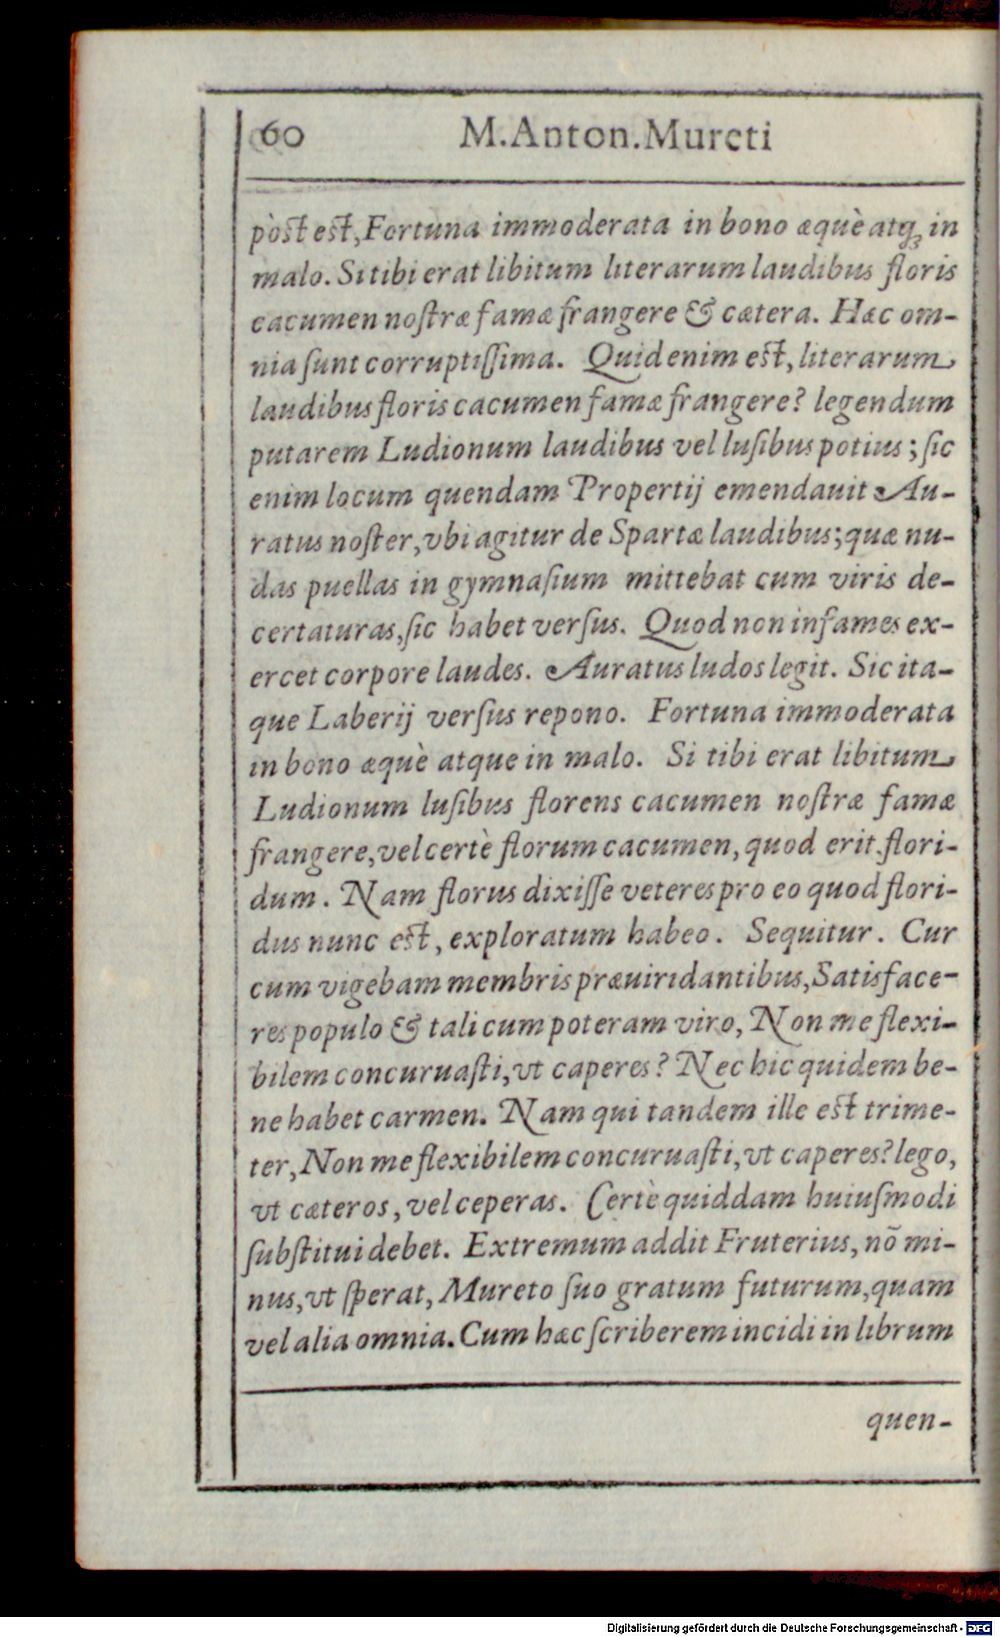 60 M. Anton. Mureti
pòst est, Fortuna immoderata in bono æquè atq; in
malo. Si tibi erat libitum literarum laudibus floris
cacumen nostræ famæ frangere & cætera. Hæc om-
nia ſunt corruptiſſima. Quid enim est, literarum
laudibus floris cacumen famæ frangere? legendum
putarem Ludionum laudibus vel luſibus potius; ſic
enim locum quendam Propertij emendauit Au-
ratus noſter, vbi agitur de Spartæ laudibus; quæ nu-
das puellas in gymnaſium mittebat cum viris de-
certaturas, ſic habet verſus. Quod non infames ex-
ercet corpore laudes. Auratus ludos legit. Sic ita-
que Laberij verſus repono. Fortuna immoderata
in bono æquè atque in malo. Si tibi erat libitum
Ludionum luſibus florens cacumen noſtræ famæ
frangere, vel certè florum cacumen, quod erit flori-
dum. Nam florus dixiſſe veteres pro eo quod flori-
dus nunc est, exploratum habeo. Sequitur. Cur
cum vigebam membris præuiridantibus, Satisface-
res populo & tali cum poteram viro, Non me flexi-
bilem concuruaſti, vt caperes? Nec hic quidem be-
ne habet carmen. Nam qui tandem ille est trime-
ter, Non me flexibilem concuruaſti, vt caperes? lego,
vt cæteros, vel ceperas. Certè quiddam huiuſmodi
ſubſtitui debet. Extremum addit Fruterius, nō mi-
nus, vt ſperat, Mureto ſuo gratum futurum, quam
vel alia omnia. Cum hæc ſcriberem incidi in librum
quen-
Digitalisierung gefördert durch die Deutsche Forschungsgemeinschaft - DFG